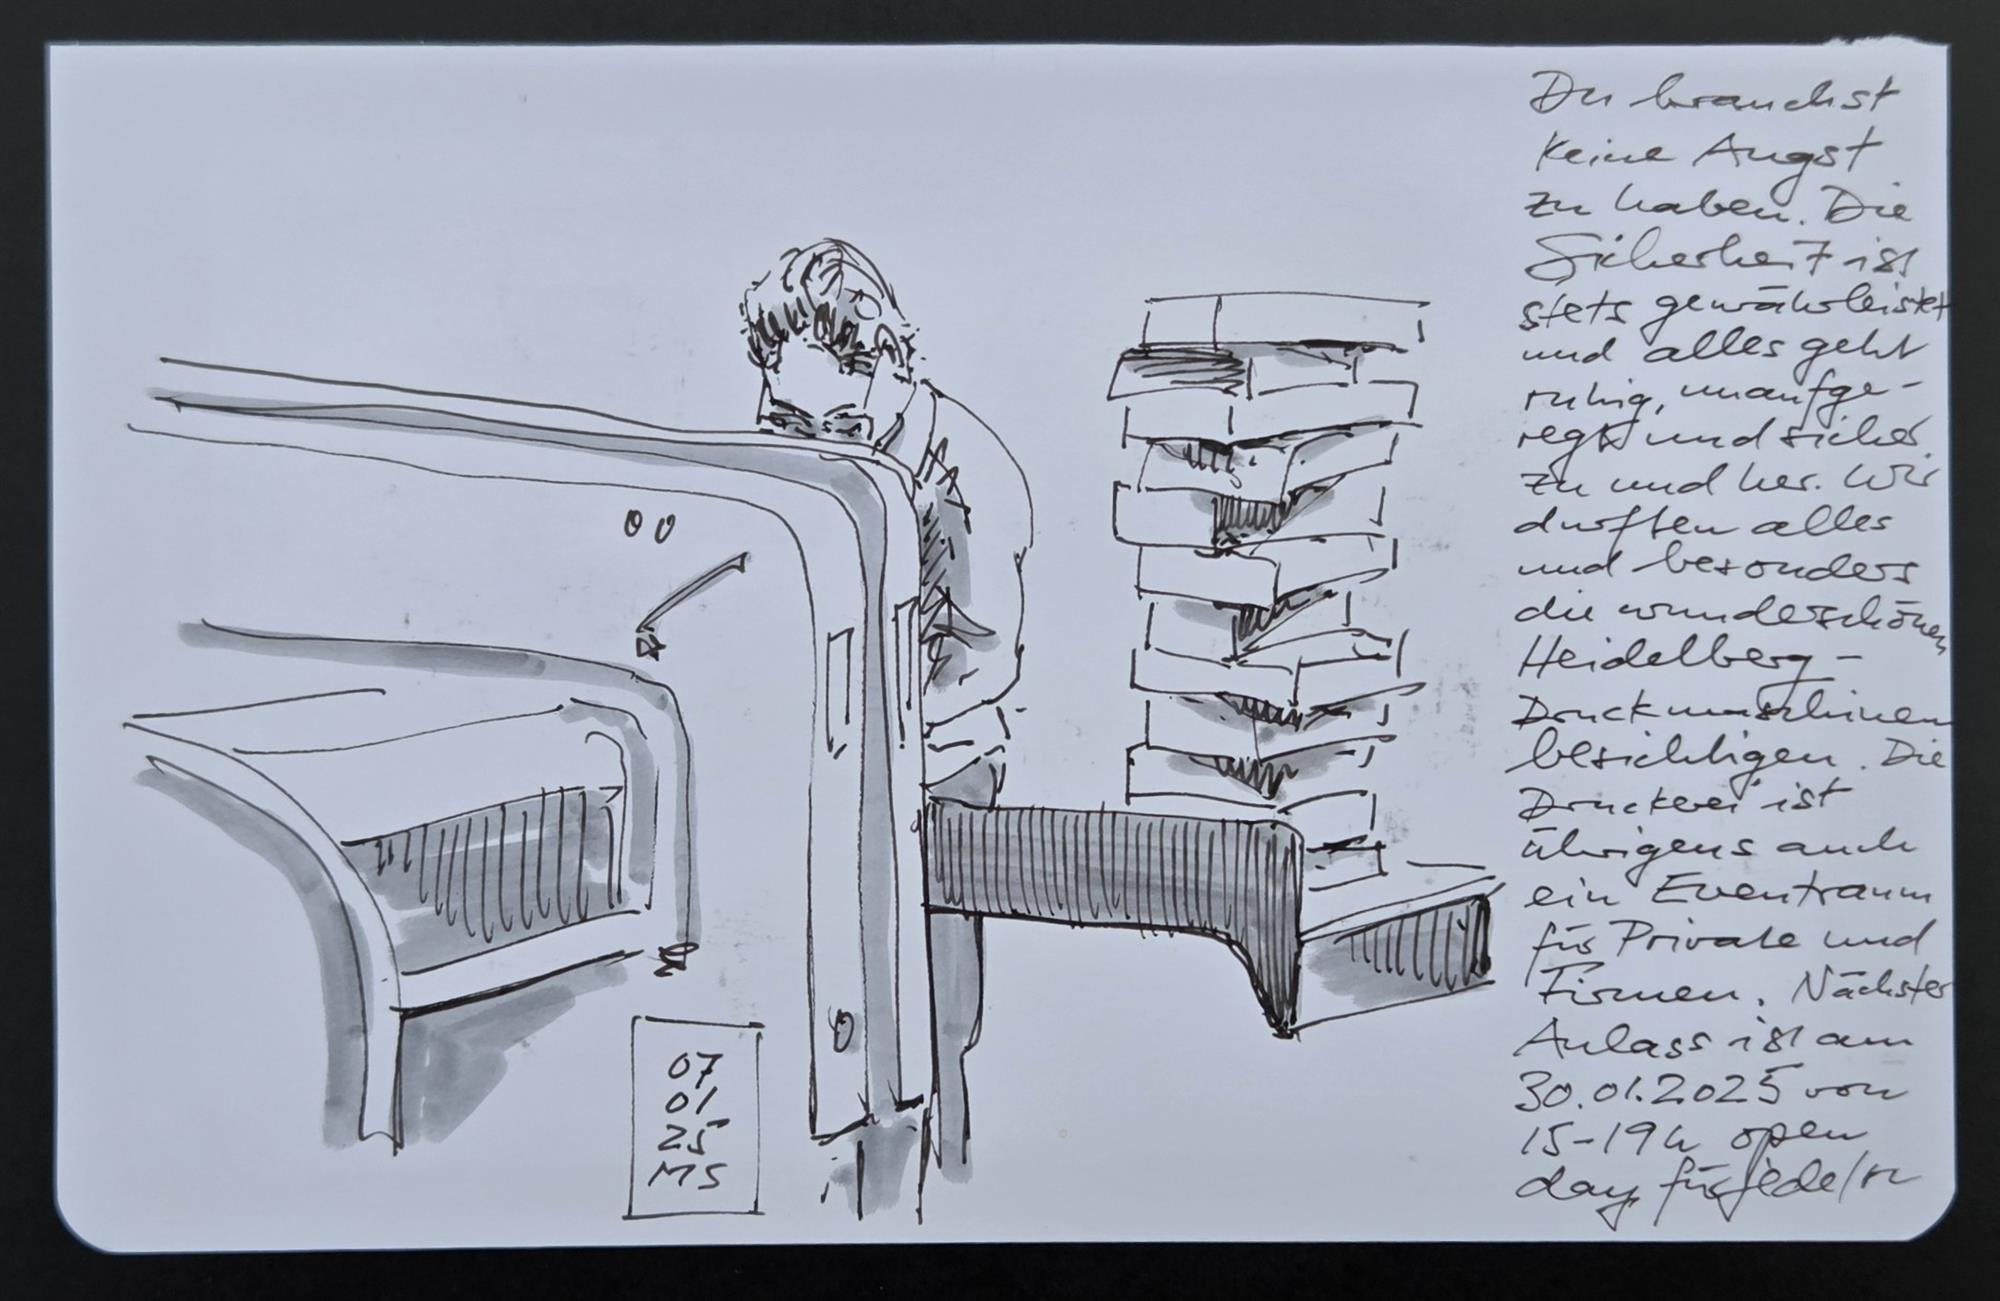 Du brauchst
keine Angst
zu haben. Die
Sicherheit ist
stets gewährleistet
und alles geht
ruhig, unaufge-
regt und sicher
zu und her. Wir
durften alles
und besonders
die wunderschönen
Heidelberg-
Druckmaschinen
besichtigen. Die
Druckerei ist
übrigens auch
ein Eventraum
für Private und
Firmen. Nächster
Anlass ist am
30.01.2025 von
15-19h open
day für jede/n
07
01
25
MS